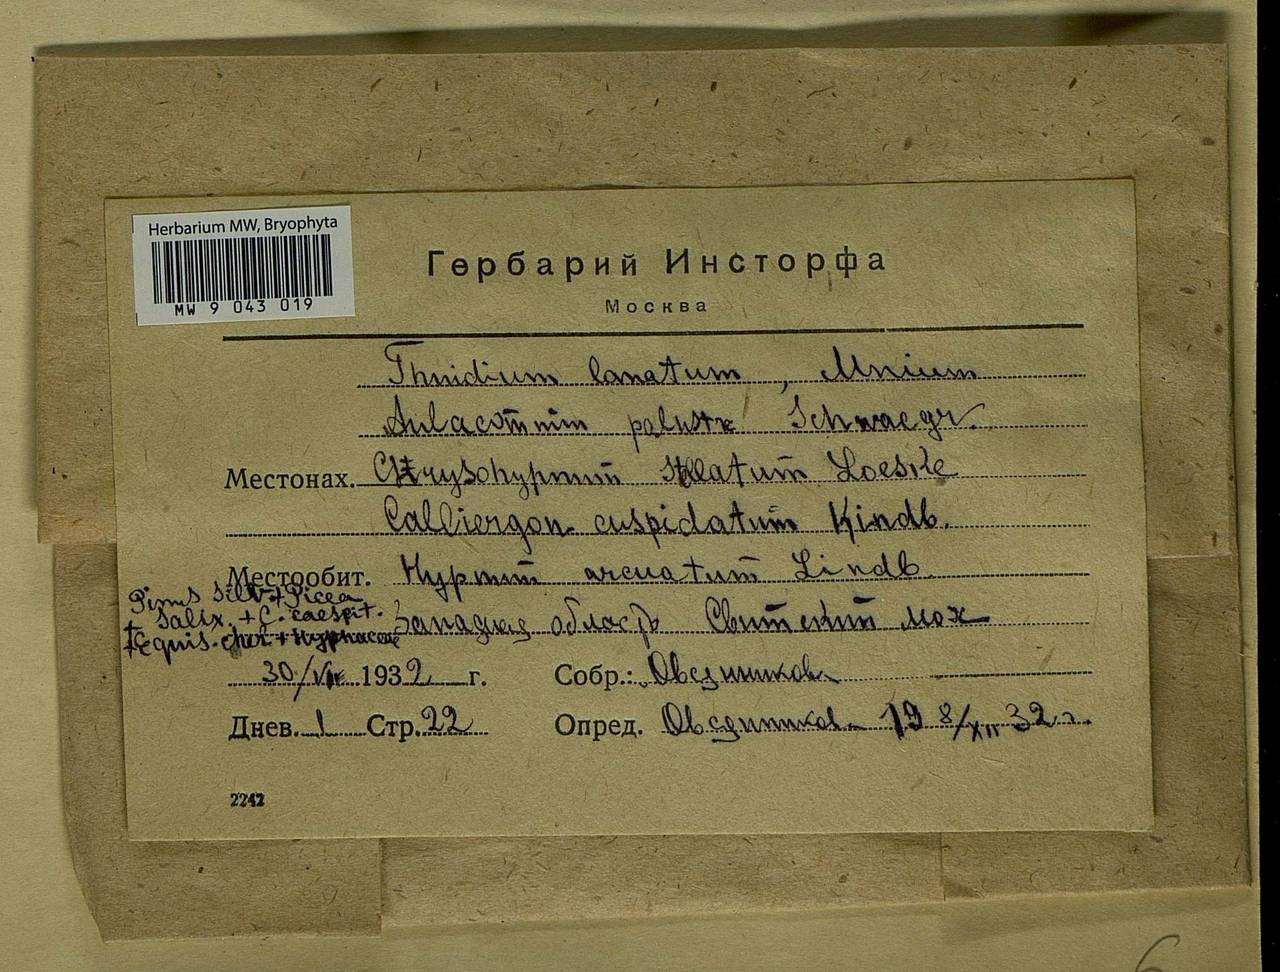 Herbarium MW, Bryophyta
MW 9 043 019
Гербарий Инсторфа
Москва
Thuidium lanatum, Mnium
Aulacomnium palustre Schwaegr.
Местонах. Chrysohypnum stellatum Loeske
Calliergon cuspidatum Kindb.
Местообит. Hypnum arcuatum Lindb.
Pinus silv + Picea
+ Salix. + C. caespit.
+ Equis.
Западная область Свитский мох
30/VII 1932 г. Собр.: Овсянникова
Днев. 1 Стр. 22 Опред. Овсянникова 19 8/XII 32 г.
2242
6